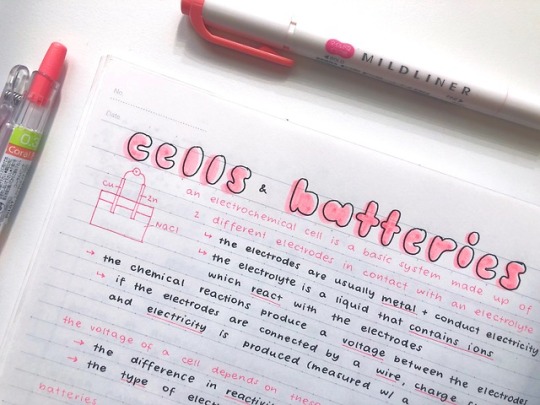 MILDLINER
No.
Date
Coral
cells & batteries
Cu
Zn
NaCl
an electrochemical cell is a basic system made up of
2 different electrodes in contact with an electrolyte
↳ the electrodes are usually metal + conduct electricity
↳ the electrolyte is a liquid that contains ions
which react with the electrodes
→ the chemical reactions produce a voltage between the electrodes
↳ if the electrodes are connected by a wire, charge
and electricity is produced (measured w/ a
the voltage of a cell depends on these
→ the difference in
→ the type of
batteries